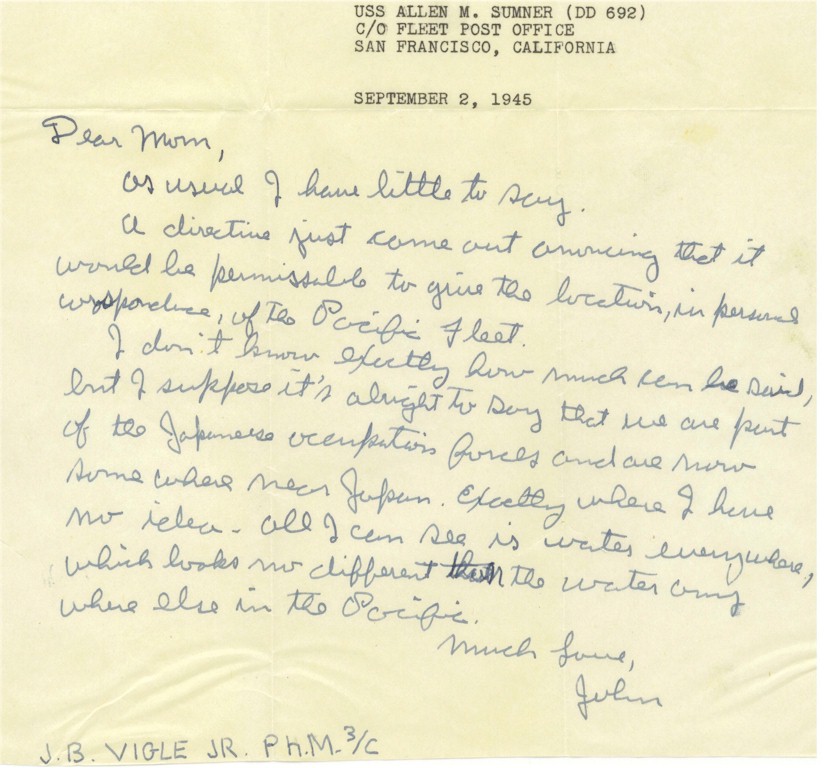 USS ALLEN M. SUMNER (DD 692)
C/O FLEET POST OFFICE
SAN FRANCISCO, CALIFORNIA
SEPTEMBER 2, 1945
Dear Mom,
As usual I have little to say.
A directive just came out anouncing that it
would be permissable to give the location, in personal
correspondence, of the Pacific Fleet.
I don't know exactly how much can be said,
but I suppose it's alright to say that we are part
of the Japanese occupation forces and are now
some where near Japan. Exactly where I have
no idea - all I can see is water everywhere,
which looks no different than the water any
where else in the Pacific.
Much Love,
John
J.B. VIGLE JR. Ph.M. 3/C